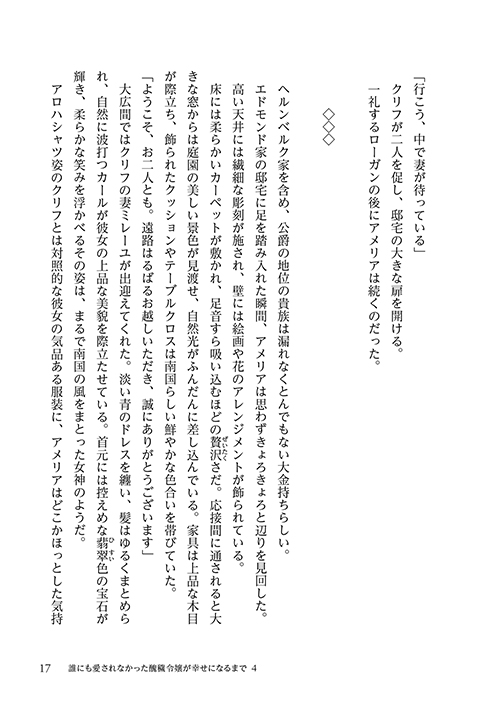 「行こう、中で妻が待っている」
クリフが二人を促し、邸宅の大きな扉を開ける。
一礼するローガンの後にアメリアは続くのだった。
◇◇◇
ヘルンベルク家を含め、公爵の地位の貴族は漏れなくとんでもない大金持ちらしい。
エドモンド家の邸宅に足を踏み入れた瞬間、アメリアは思わずきょろきょろと辺りを見回した。
高い天井には繊細な彫刻が施され、壁には絵画や花のアレンジメントが飾られている。
床には柔らかいカーペットが敷かれ、足音すら吸い込むほどの贅沢さだ。応接間に通されると大
ぜいたく
きな窓からは庭園の美しい景色が見渡せ、自然光がふんだんに差し込んでいる。家具は上品な木目
が際立ち、飾られたクッションやテーブルクロスは南国らしい鮮やかな色合いを帯びていた。
「ようこそ、お二人とも。遠路はるばるお越しいただき、誠にありがとうございます」
大広間ではクリフの妻ミレーユが出迎えてくれた。淡い青のドレスを纏い、髪はゆるくまとめら
れ、自然に波打つカールが彼女の上品な美貌を際立たせている。首元には控えめな翡翠色の宝石が
ひすい
輝き、柔らかな笑みを浮かべるその姿は、まるで南国の風をまとった女神のようだ。
アロハシャツ姿のクリフとは対照的な彼女の気品ある服装に、アメリアはどこかほっとした気持
17 誰にも愛されなかった醜穢令嬢が幸せになるまで 4